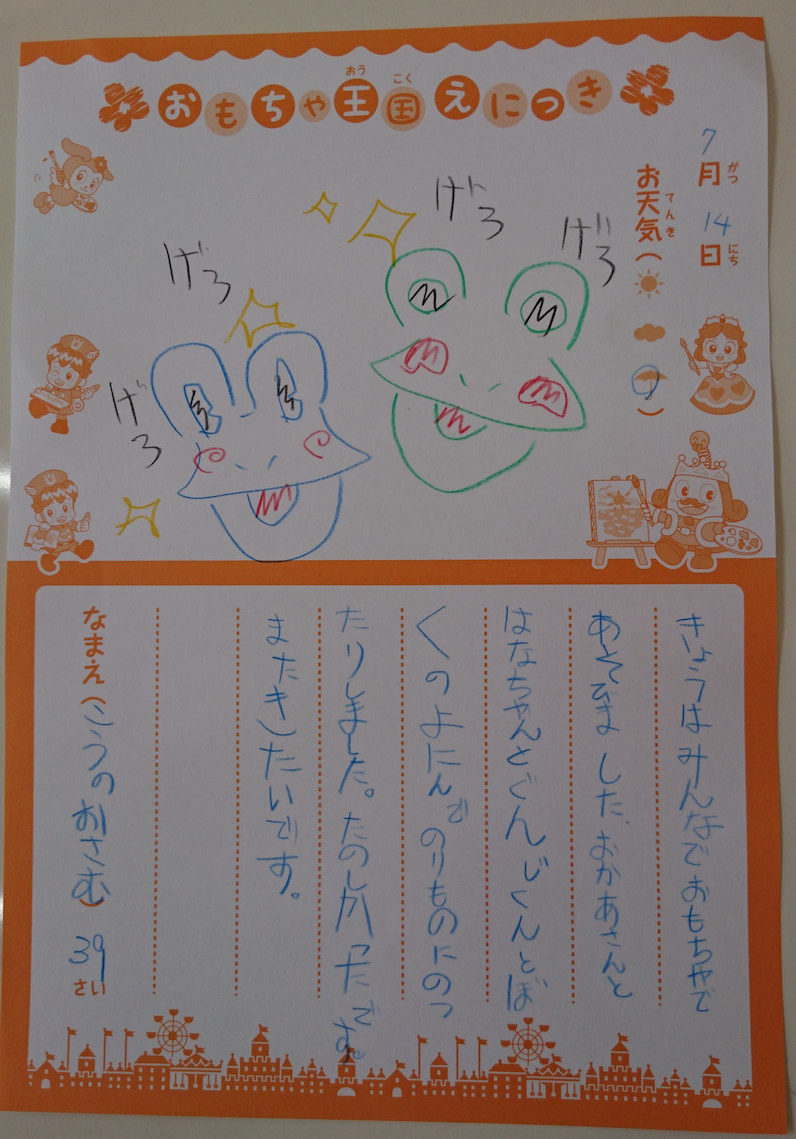 おもちゃ王国えにっき
おう
こく
7月14日
がつ
にち
お天気(
てんき
)
げろ
げろ
げろ
げろ
きょうはみんなでおもちゃで
あそびました、おかあさんと
はなちゃんとぐんじくんとぼ
くのよにんでのりものにのっ
たりしました。たのしかったです。
またきたいです。
なまえ(こうのおさむ)39さい